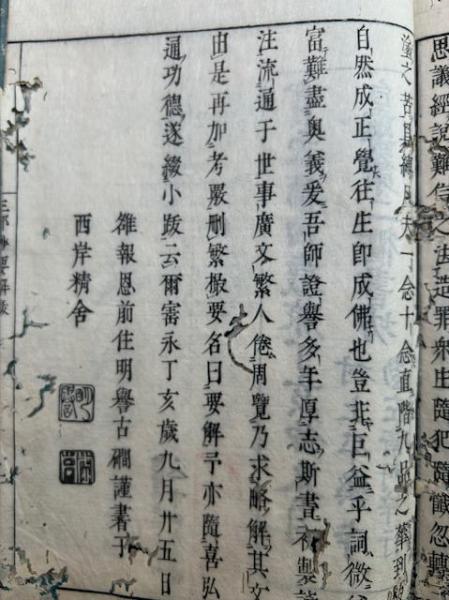 思議經說難信之法造罪衆生隨犯隨懺忽轉
之苦具縛凡夫一念十念直階九品之華
自然成正覺往生即成佛也豈非巨益乎詞微
富難盡奧義爰吾師證譽多年厚志斯書初製
注流通于世事廣文繁人倦周覽乃求略解其文
由是再加考嚴刪繁撮要名曰要解予亦隨喜弘
通功德遂綴小跋云爾寶永丁亥歲九月廿五日
雒報恩前住明譽古磵謹書于
西岸精舍